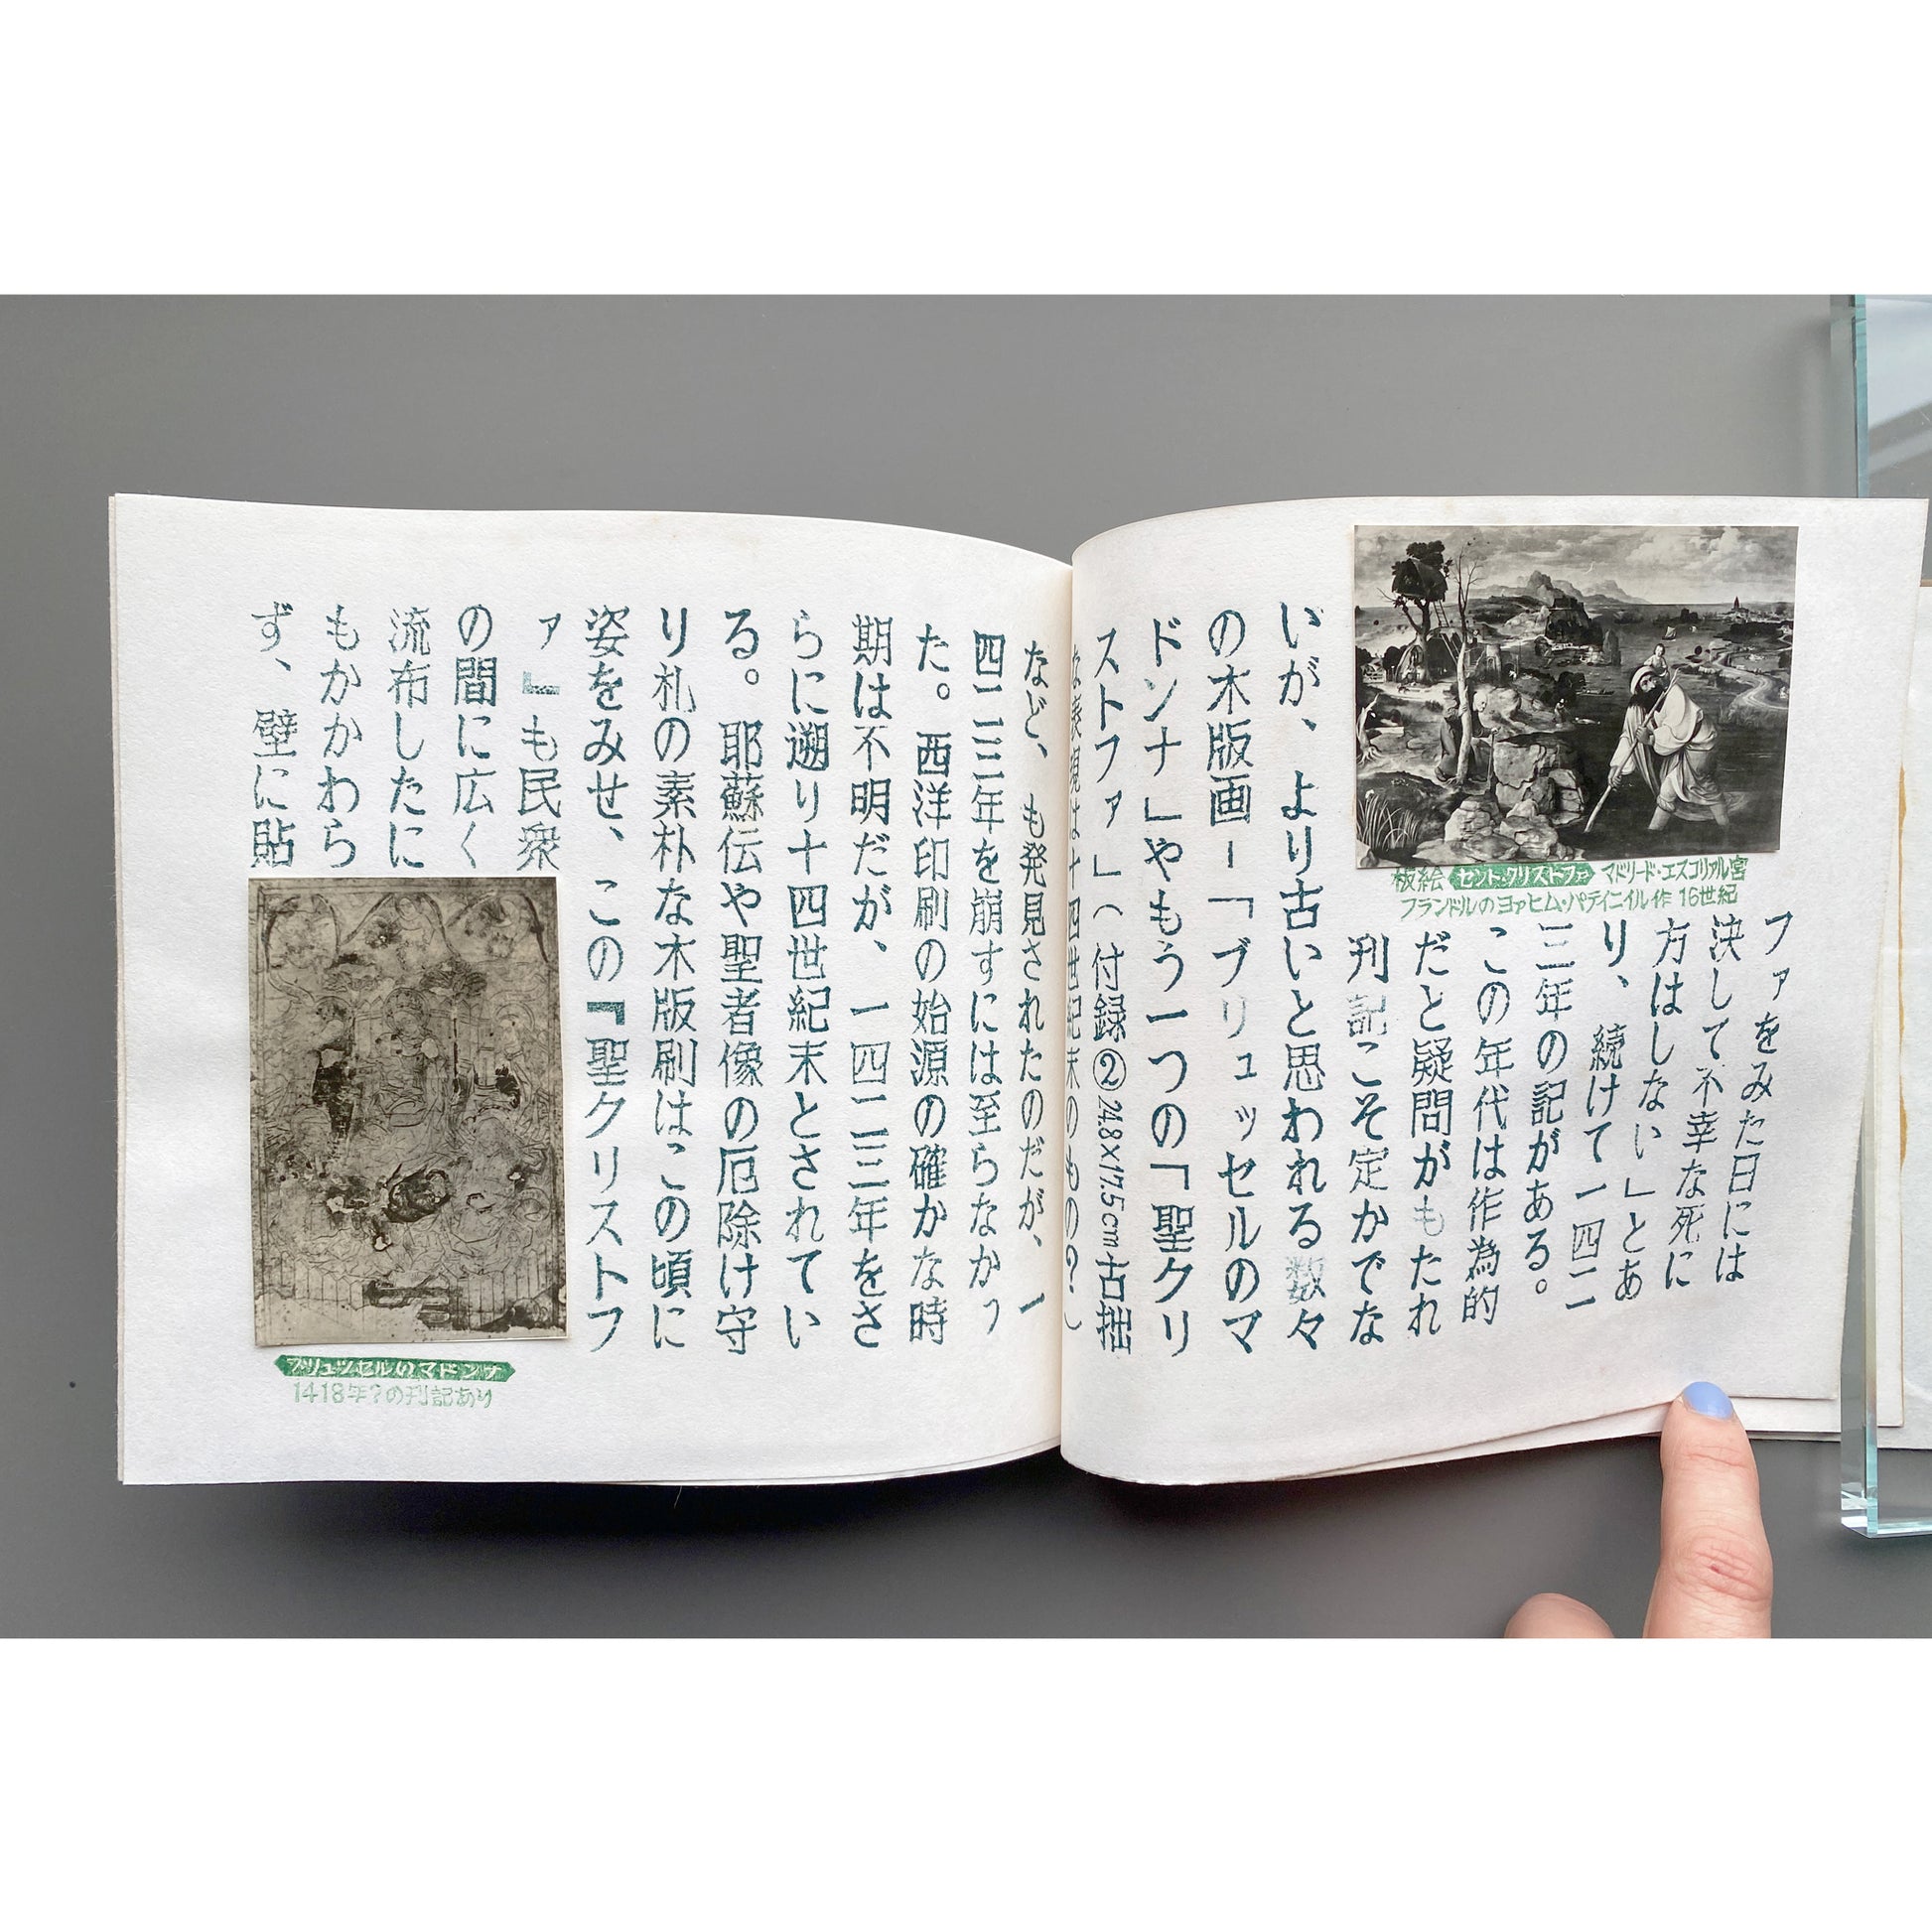 板絵 セント・クリストファ マドリード・エスコリアル宮
フランドルのヨァヒム・パティニイル作 16世紀
ファをみた日には
決して不幸な死に
方はしない」とあ
り、続けて一四二
三年の記がある。
この年代は作為的
だと疑問がもたれ
刋記こそ定かでな
いが、より古いと思われる数々
の木版画ー「ブリュッセルのマ
ドンナ」やもう一つの「聖クリ
ストファ」(付録②24.8×17.5cm古拙
な表現は十四世紀末のもの?)
など、も発見されたのだが、一
四二三年を崩すには至らなかっ
た。西洋印刷の始源の確かな時
期は不明だが、一四二三年をさ
らに遡り十四世紀末とされてい
る。耶蘇伝や聖者像の厄除け守
り札の素朴な木版刷はこの頃に
姿をみせ、この『聖クリストフ
ァ』も民衆
の間に広く
流布したに
もかかわら
ず、壁に貼
ブリュッセルのマドンナ
1418年?の刋記あり